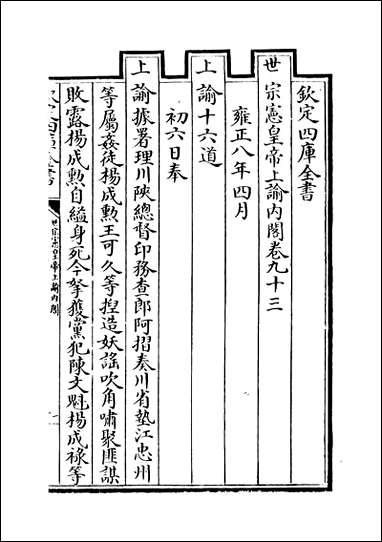 欽定四庫全書
世宗憲皇帝上諭内閣卷九十三
雍正八年四月
上諭十六道
初六日奉
上諭據署理川陝總督印務查郎阿摺奏川省墊江忠州
等屬姦徒楊成勲王可久等揑造妖謡吹角嘯聚匪謀
敗露楊成勲自縊身死今拏獲黨犯陳文魁楊成禄等
世宗憲皇帝上諭内閣